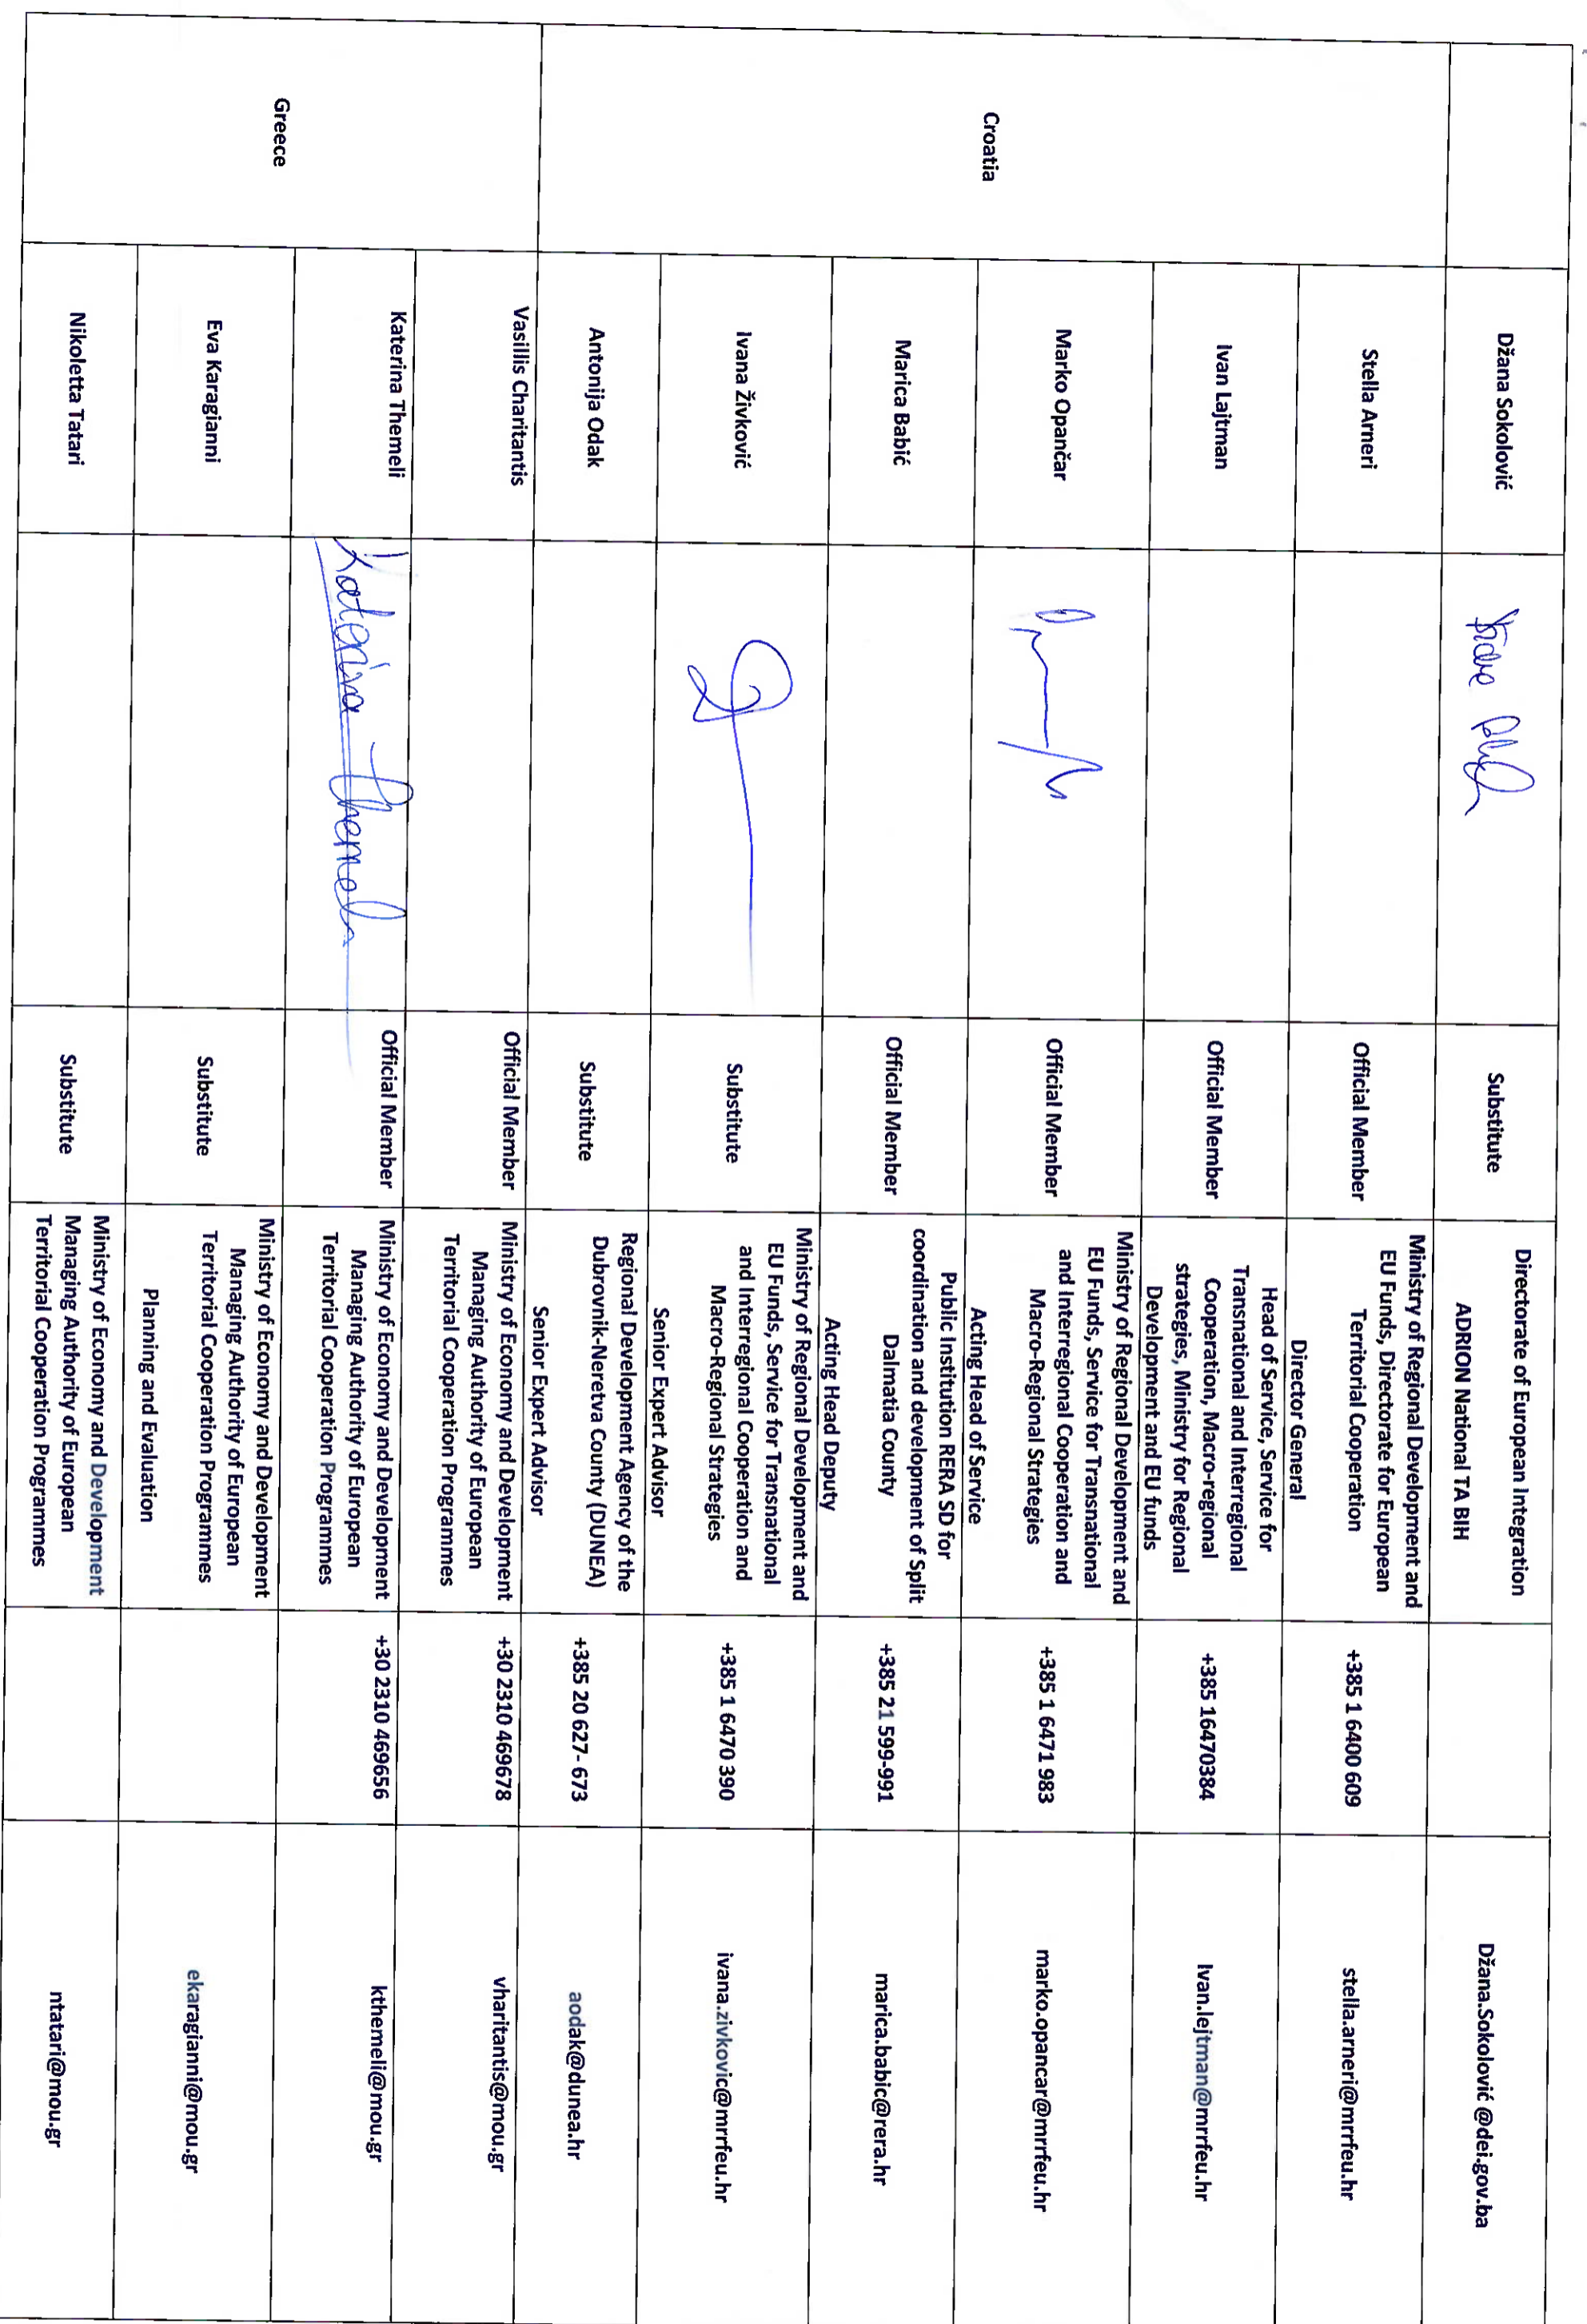 Džana Sokolović
Substitute
Directorate of European Integration
ADRION National TA BIH
Džana.Sokolović @dei.gov.ba
Croatia
Stella Arneri
Official Member
Ministry of Regional Development and
EU Funds, Directorate for European
Territorial Cooperation
Director General
+385 1 6400 609
stella.arneri@mrrfeu.hr
Ivan Lajtman
Official Member
Head of Service, Service for
Transnational and Interregional
Cooperation, Macro-regional
strategies, Ministry for Regional
Development and EU funds
+385 16470384
Ivan.lejtman@mrrfeu.hr
Marko Opančar
Official Member
Ministry of Regional Development and
EU Funds, Service for Transnational
and Interregional Cooperation and
Macro-Regional Strategies
Acting Head of Service
+385 1 6471 983
marko.opancar@mrrfeu.hr
Marica Babić
Official Member
Public Institution RERA SD for
coordination and development of Split
Dalmatia County
Acting Head Deputy
+385 21 599-991
marica.babic@rera.hr
Ivana Živković
Substitute
Ministry of Regional Development and
EU Funds, Service for Transnational
and Interregional Cooperation and
Macro-Regional Strategies
Senior Expert Advisor
+385 1 6470 390
ivana.zivkovic@mrrfeu.hr
Antonija Odak
Substitute
Regional Development Agency of the
Dubrovnik-Neretva County (DUNEA)
Senior Expert Advisor
+385 20 627- 673
aodak@dunea.hr
Greece
Vasillis Charitantis
Official Member
Ministry of Economy and Development
Managing Authority of European
Territorial Cooperation Programmes
+30 2310 469678
vharitantis@mou.gr
Katerina Themeli
Katerina Themeli
Official Member
Ministry of Economy and Development
Managing Authority of European
Territorial Cooperation Programmes
+30 2310 469656
kthemeli@mou.gr
Eva Karagianni
Substitute
Ministry of Economy and Development
Managing Authority of European
Territorial Cooperation Programmes
Planning and Evaluation
ekaragianni@mou.gr
Nikoletta Tatari
Substitute
Ministry of Economy and Development
Managing Authority of European
Territorial Cooperation Programmes
ntatari@mou.gr